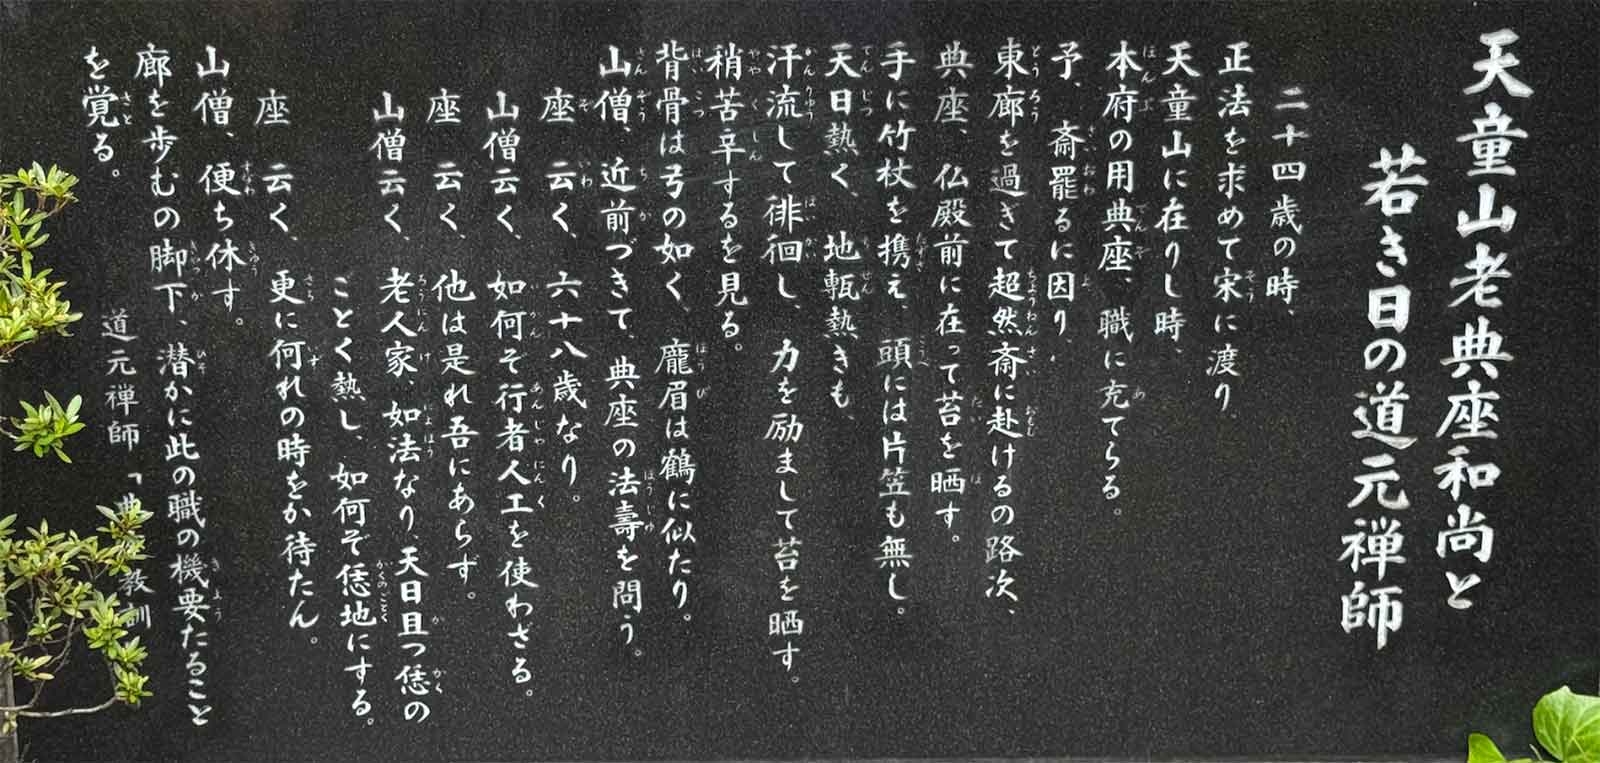 天童山老典座和尚と
若き日の道元禅師
二十四歳の時、
正法を求めて宋に渡り、
天童山に在りし時、
本府の用典座、職に充てらる。
予、斎罷るに因り、
東廊を過ぎて超然斎に赴けるの路次、
典座、仏殿前に在って苔を晒す。
手に竹杖を携え、頭には片笠も無し。
天日熱く、地甎熱きも、
汗流して徘徊し、力を励まして苔を晒す。
稍苦辛するを見る。
背骨は弓の如く、龐眉は鶴に似たり。
山僧、近前づきて、典座の法壽を問う。
座 云く、六十八歳なり。
山僧云く、如何ぞ行者人工を使わざる。
座 云く、他は是れ吾にあらず。
山僧云く、老人家、如法なり、天日且つ恁の
ごとく熱し、如何ぞ恁地にする。
座 云く、更に何れの時をか待たん。
山僧、便ち休す。
廊を歩むの脚下、潜かに此の職の機要たること
を覚る。
道元禅師「典 教訓